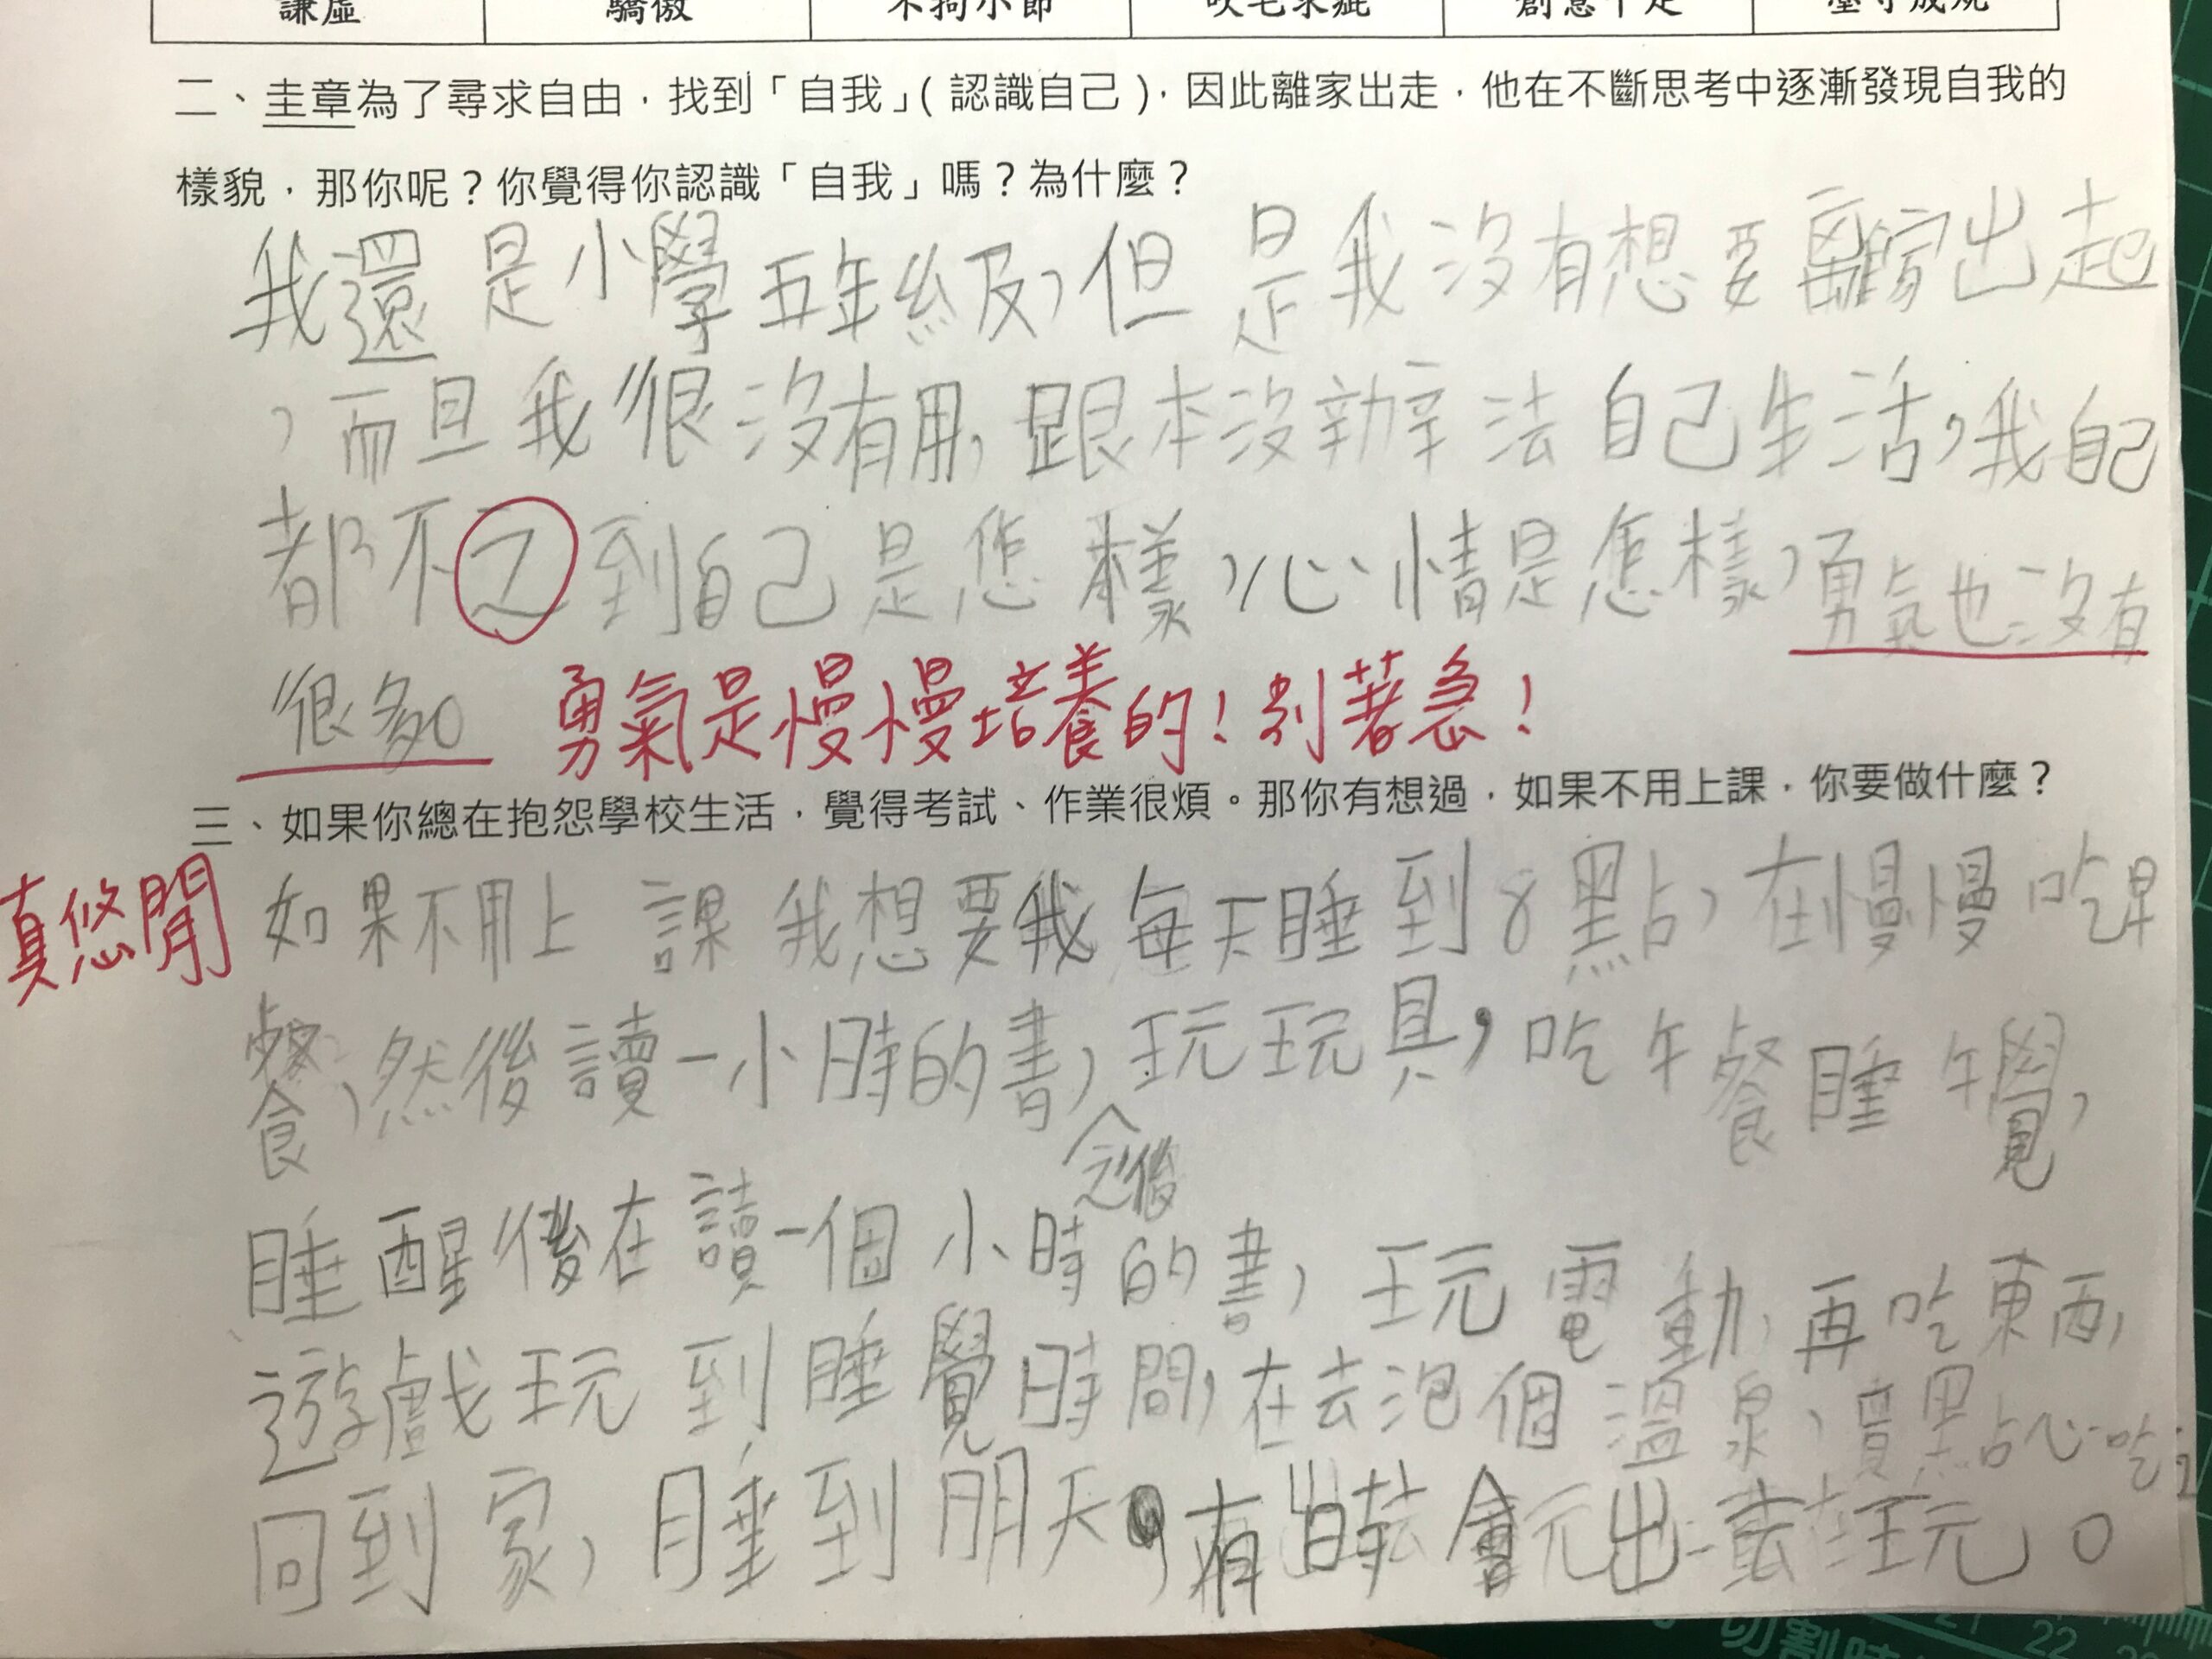 謙虛 驕傲 不拘小節 吹毛求疵 創意十足 墨守成規
二、圭章為了尋求自由,找到「自我」(認識自己),因此離家出走,他在不斷思考中逐漸發現自我的
樣貌,那你呢?你覺得你認識「自我」嗎?為什麼?
我還是小學五年級,但是我沒有想要離家出走
,而且我很沒有用,跟本沒辦法自己生活,我自己
都不之到自己是怎樣,心情是怎樣,勇氣也沒有
很多。 勇氣是慢慢培養的!別著急!
三、如果你總在抱怨學校生活,覺得考試、作業很煩。那你有想過,如果不用上課,你要做什麼?
真悠閒 如果不用上課我想要我每天睡到8點,在慢慢吃早
餐,然後讀一小時的書,玩玩具,吃午餐睡午覺,
睡醒後在讀一個小時的書,玩電動,再吃東西,
念後
遊戲玩到睡覺時間,在去泡個溫泉,買點心吃
回到家,睡到明天,有時會出去玩。
21 22
切割